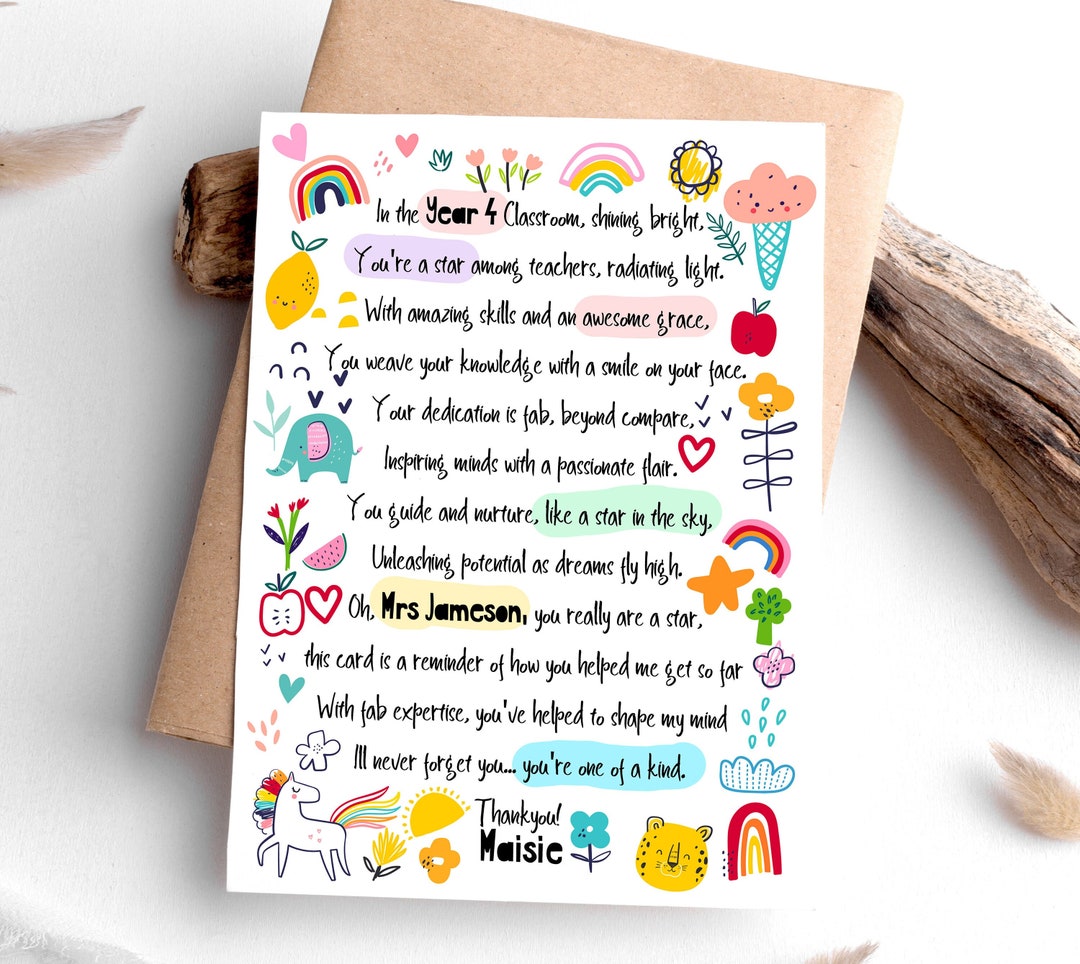 In the Year 4 Classroom, shining bright,
You're a star among teachers, radiating light.
With amazing skills and an awesome grace,
You weave your knowledge with a smile on your face.
Your dedication is fab, beyond compare,
Inspiring minds with a passionate flair.
You guide and nurture, like a star in the sky,
Unleashing potential as dreams fly high.
Oh, Mrs Jameson, you really are a star,
this card is a reminder of how you helped me get so far
With fab expertise, you've helped to shape my mind
Ill never forget you... you're one of a kind.
Thankyou!
Maisie